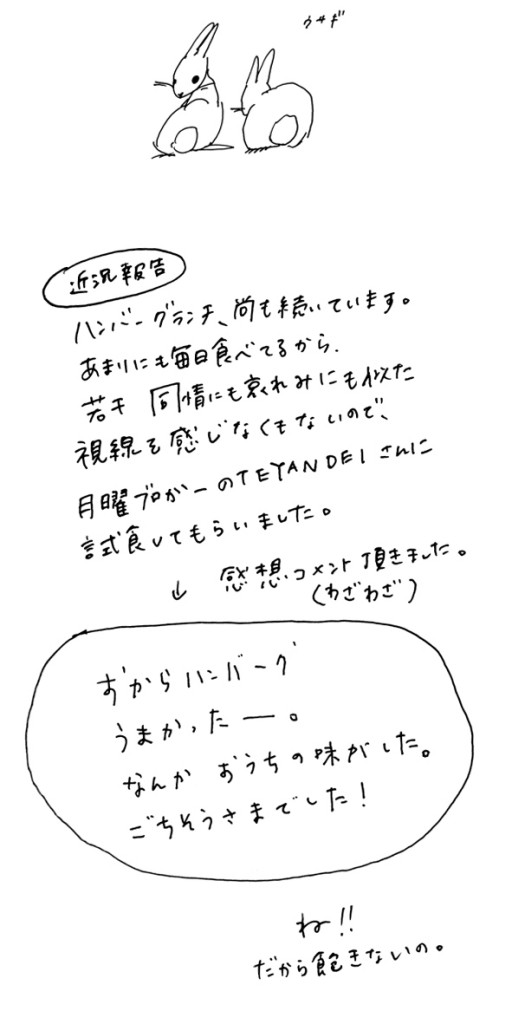 ウサギ
近況報告
ハンバーグランチ、尚も続いています。
あまりにも毎日食べてるから、
若干 同情にも哀れみにも似た
視線を感じなくもないので、
月曜ブロガーのTEYANDEIさんに
試食してもらいました。
↓ 感想コメント頂きました。
(わざわざ)
おからハンバーグ
うまかったー。
なんか おうちの味がした。
ごちそうさまでした!
ね!!
だから飽きないの。